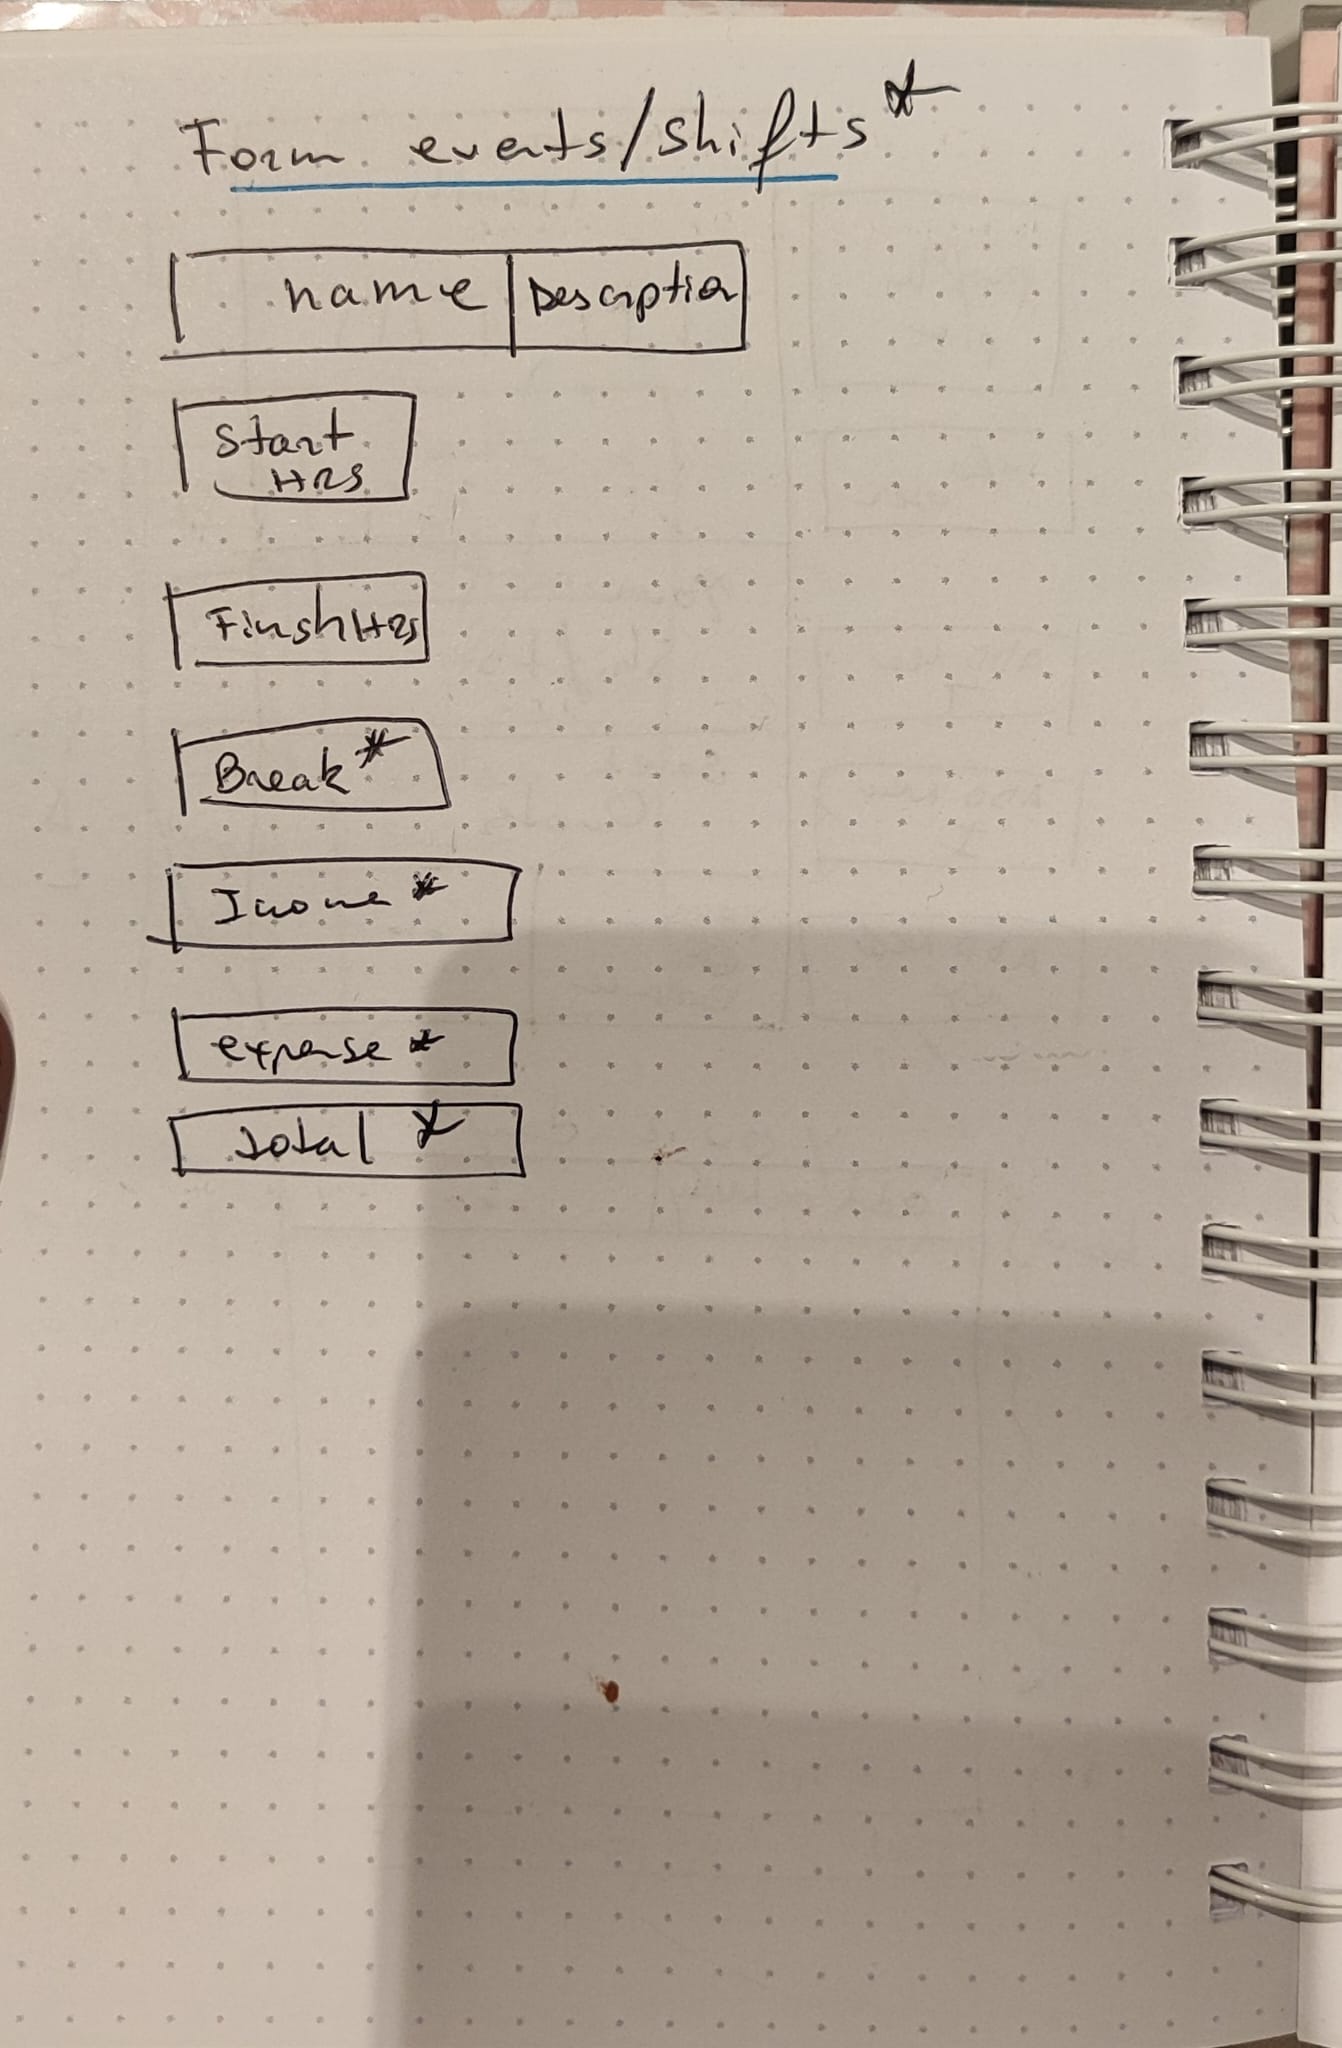 Form events/shifts*
name Description
Start
HRS
FinshHRS
Break *
Income *
expense *
total *